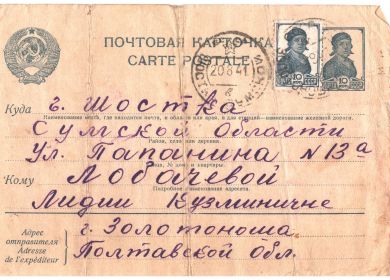 ПОЧТОВАЯ КАРТОЧКА
CARTE POSTALE
20 8 41
10
10
Куда г. Шостка
Наименование места, где находится почта, и области или края, а для станций—наименование железной дороги.
Сумской Области
Район, село или деревня.
ул. Папанина № 13а
Улица, № дома и квартиры.
Кому Лобачевой
Подробное наименование адресата.
Лидии Кузминичне
Адрес отправителя
Adresse de l'expéditeur
г. Золотоноша
Полтавской обл.